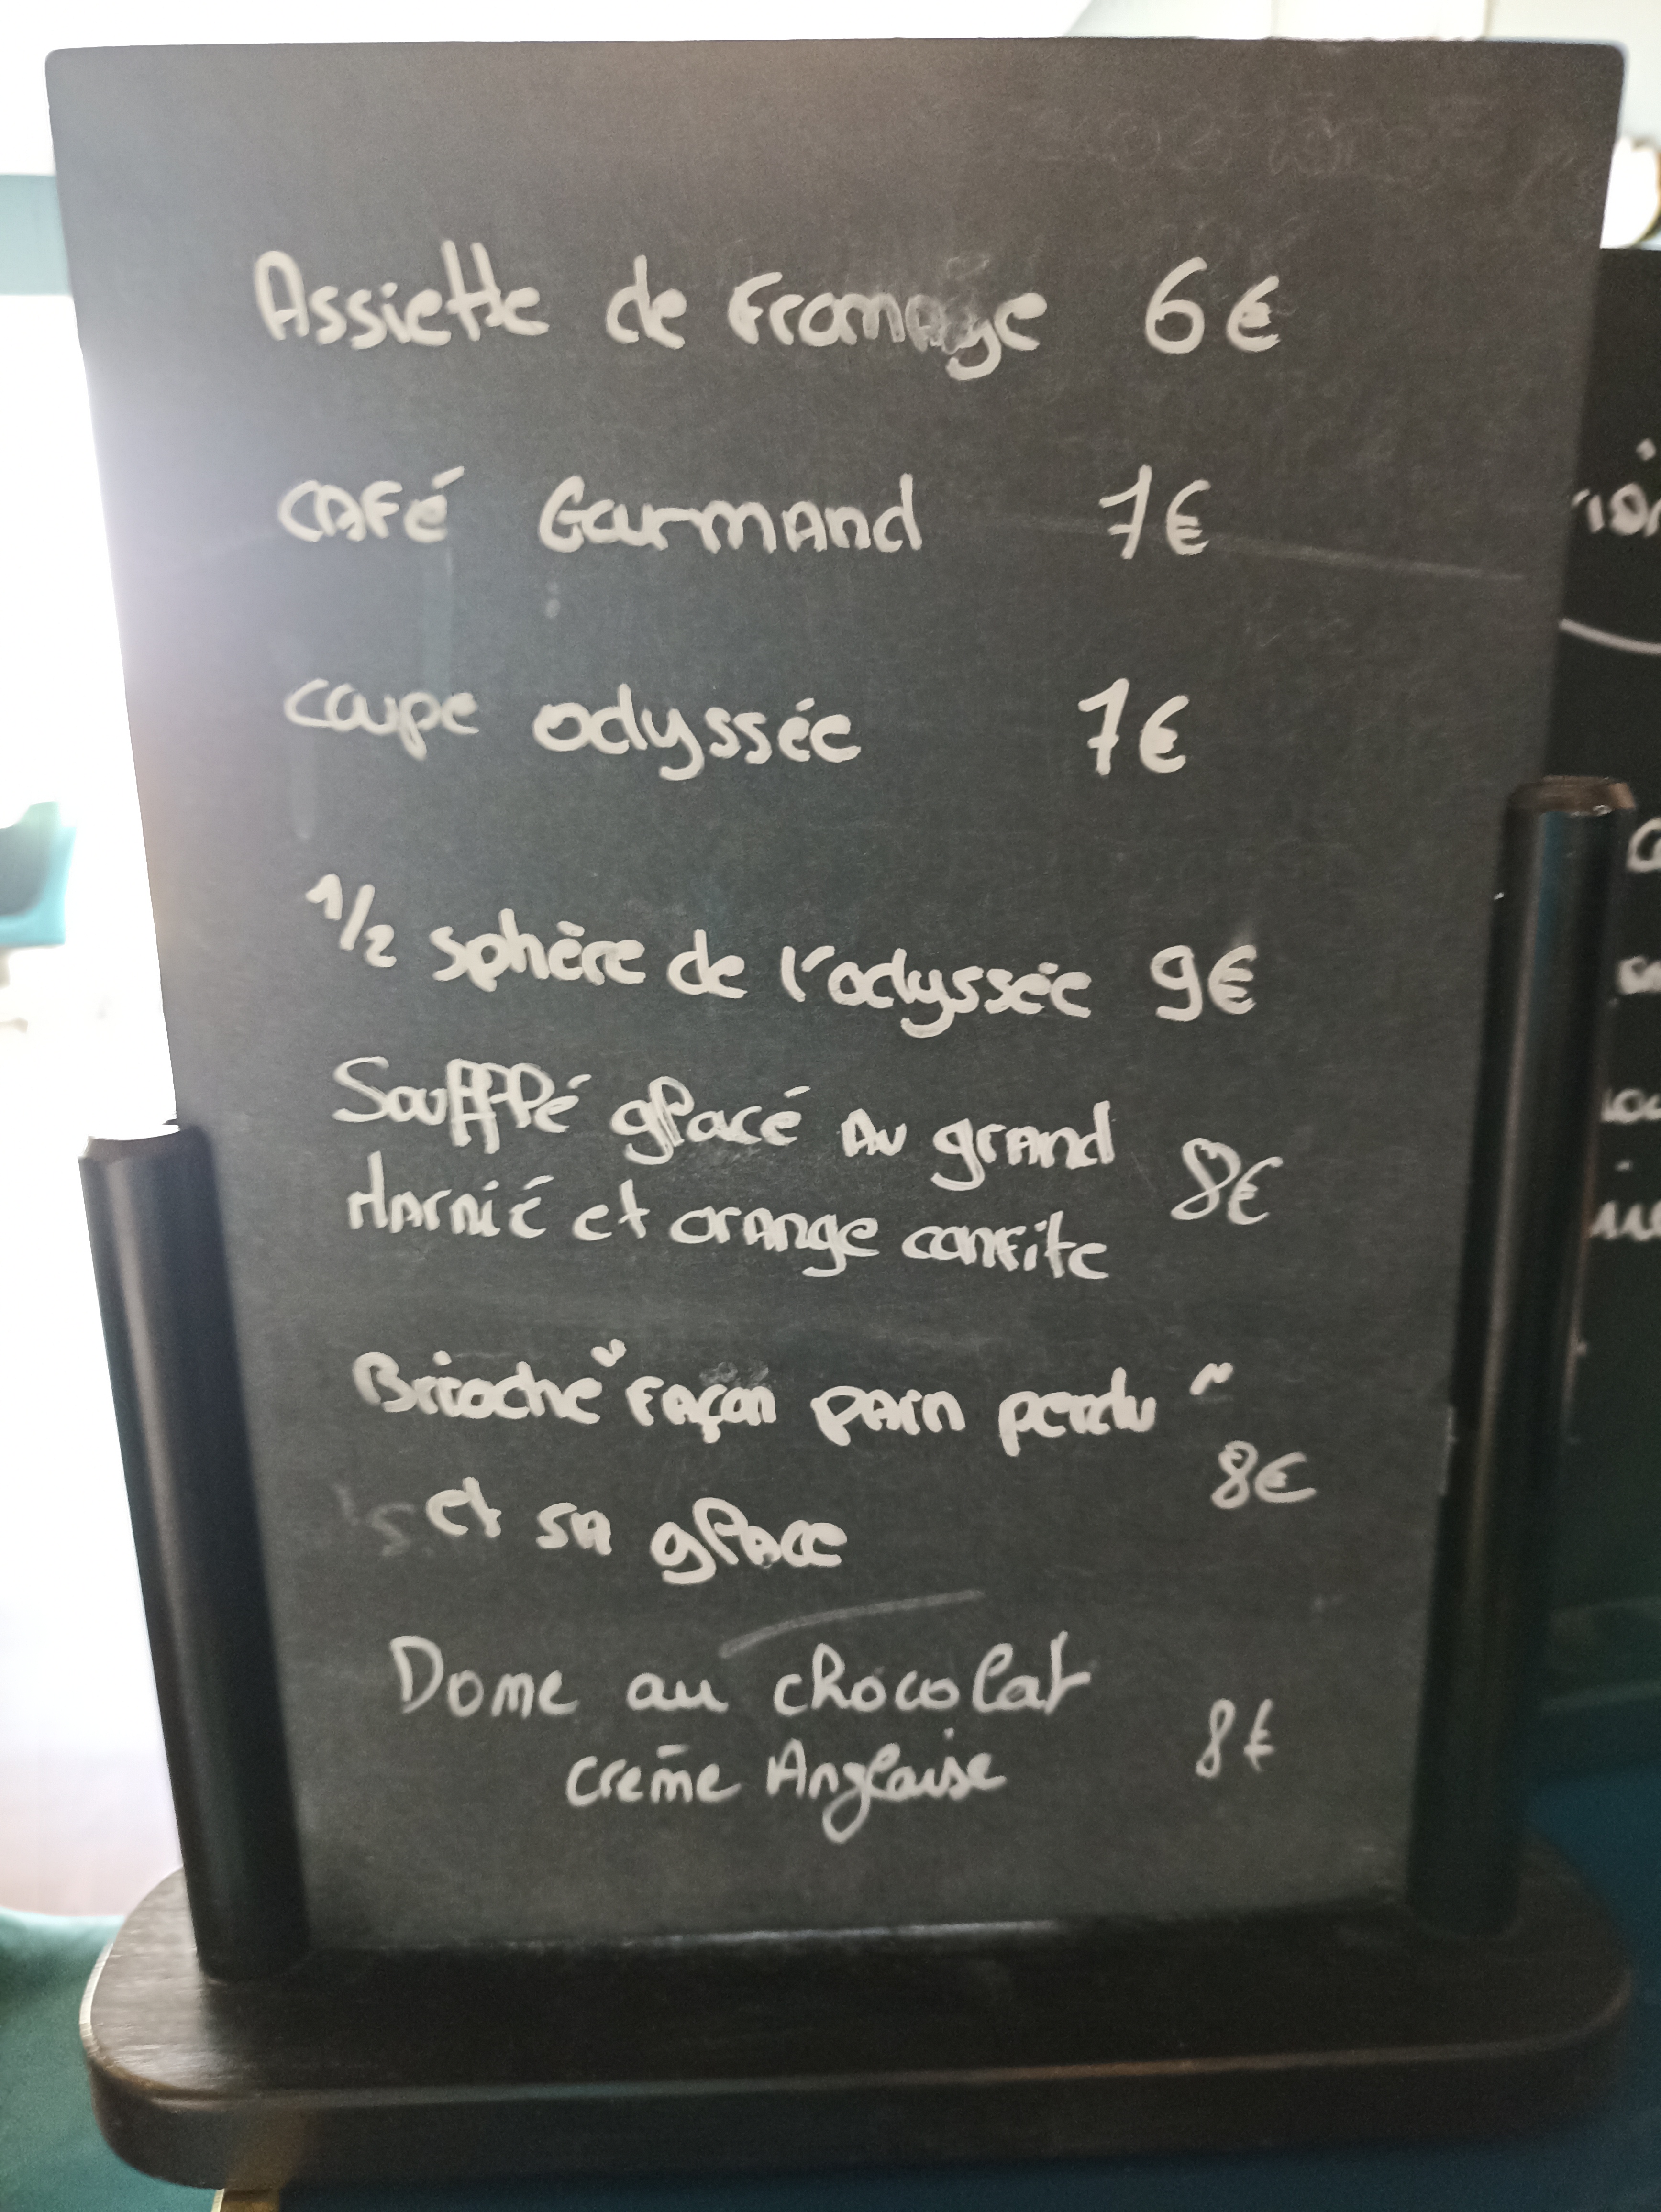 Assiette de Fromage 6€
CAFé Gourmand 7€
coupe odyssée 7€
1/2 sphère de l'odyssée 9€
Soufflé glacé Au grand
Marnié et orange confite 8€
Brioche "Façon pain perdu"
8€
et sa glace
Dome au chocolat
crème Anglaise 8€